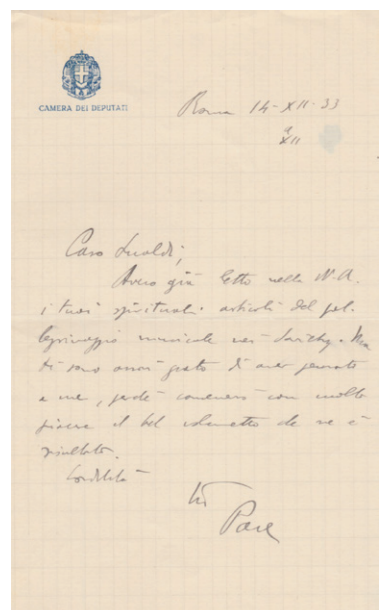 CAMERA DEI DEPUTATI
Roma 14-XII-33
XII
Caro Lualdi,
Avevo già letto nella N.A.
i tuoi spirituali articoli del pel-
legrinaggio musicale nei Soviety. Ma
ti sono assai grato di aver pensato
a me, perché conserverò con molto
piacere il bel volumetto che ne è
risultato.
Cordialità
tuo
Pace